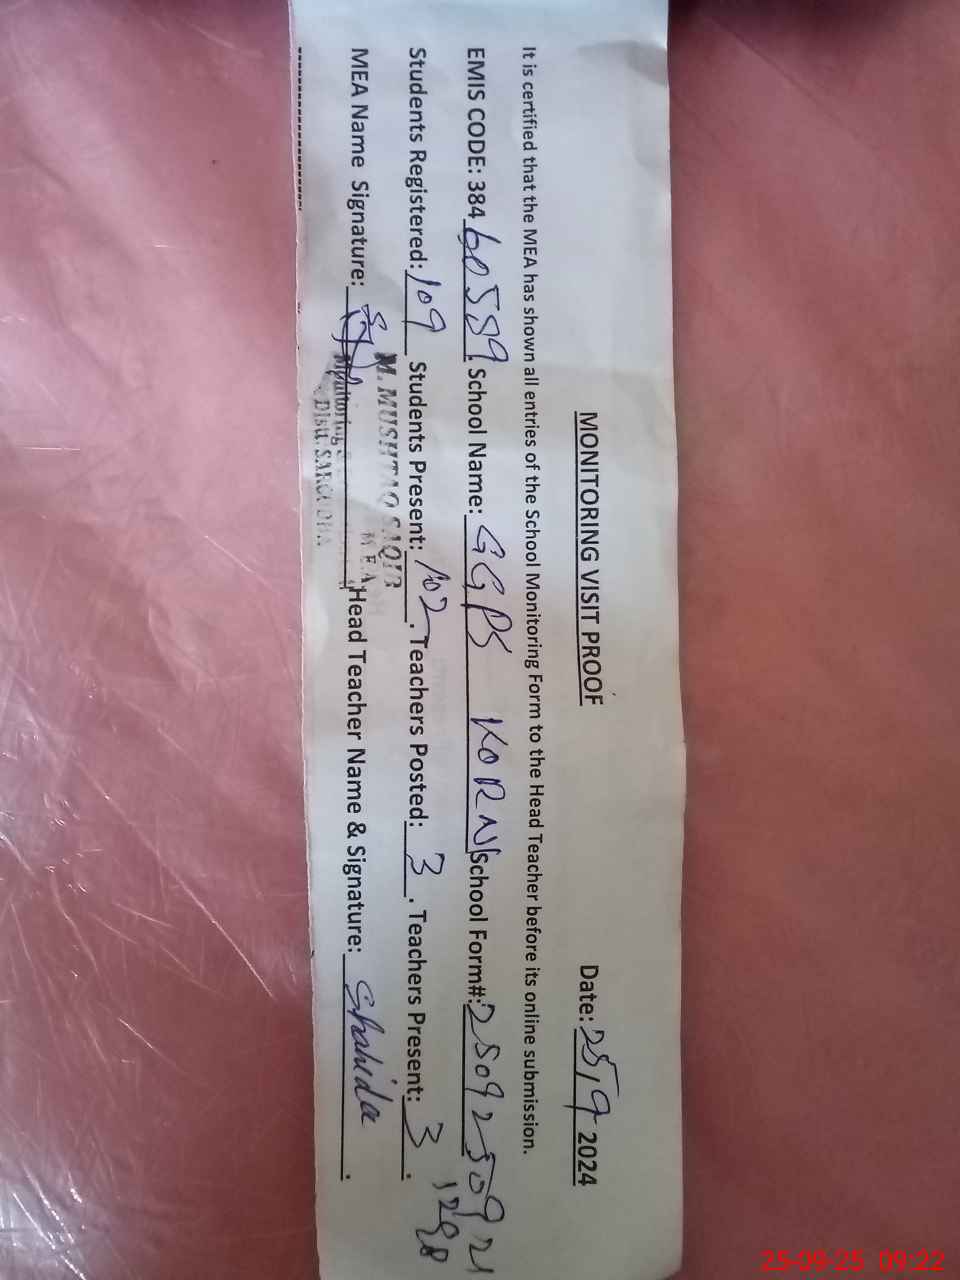 MONITORING VISIT PROOF Date: 25/9 2024
It is certified that the MEA has shown all entries of the School Monitoring Form to the Head Teacher before its online submission.
EMIS CODE: 384 60589 School Name: GGPS KORN School Form#: 2509250921
1298
Students Registered: 109 Students Present: 102. Teachers Posted: 3. Teachers Present: 3.
M. MUSHTAQ SAQIB
MEA
MEA Name Signature: Head Teacher Name & Signature: Shahida.
Distt. SARGODHA
25-09-25 09:22